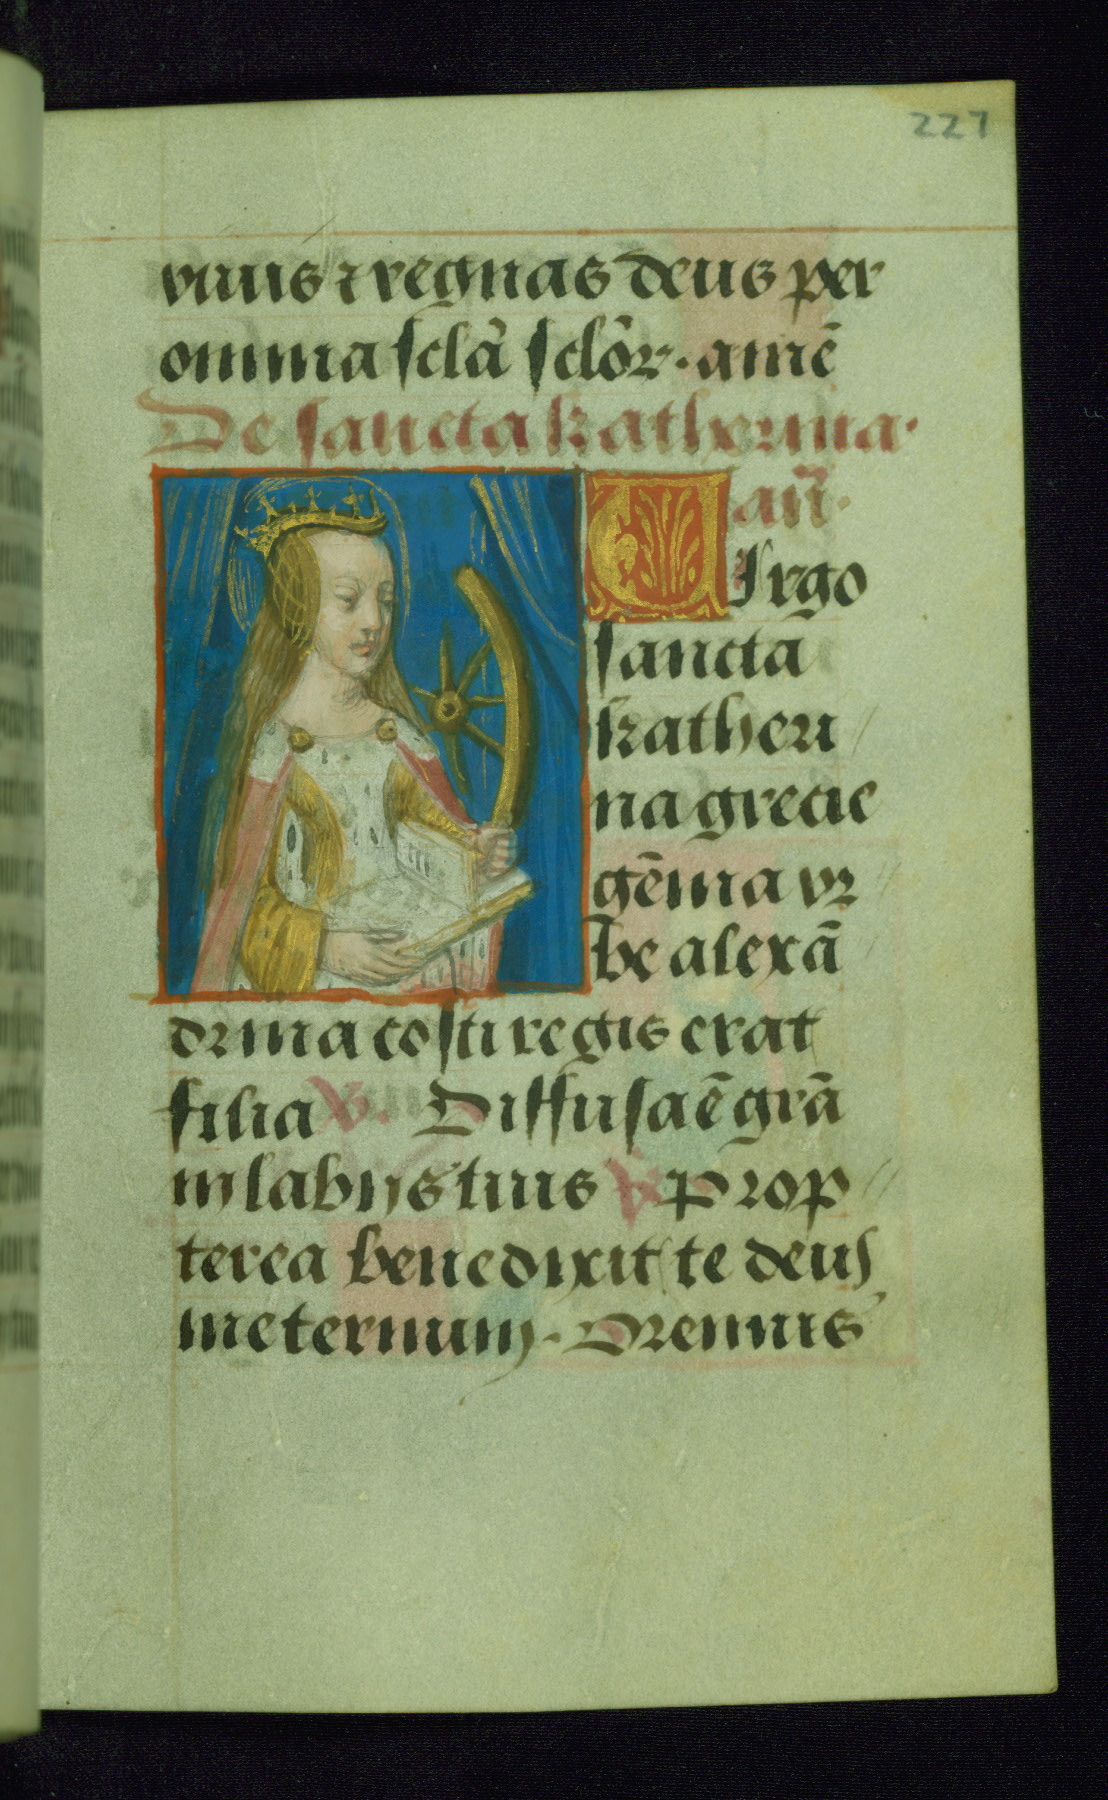 227
viuis ⁊ regnas deus per
omnia sclā sclōꝝ. amē
De sancta katherina.
añ.
Virgo
sancta
katheri
na grecie
gēma vr
be alexā
drina costi regis erat
filia ℣. Diffusa ē grā
in labijs tuis ℟ Prop
terea benedixit te deus
in eternum. Oremus